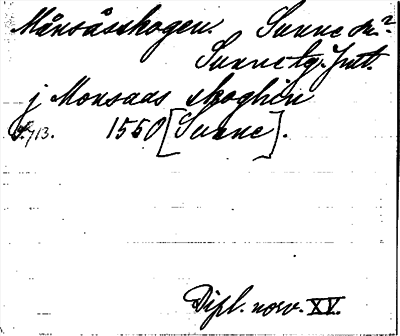 Månsåsskogen. Sunne sn.?
Sunne tg. Jmt.
j Monsaas skoghin
S. 713. 1550 [Sunne].
Dipl. norv. XV.